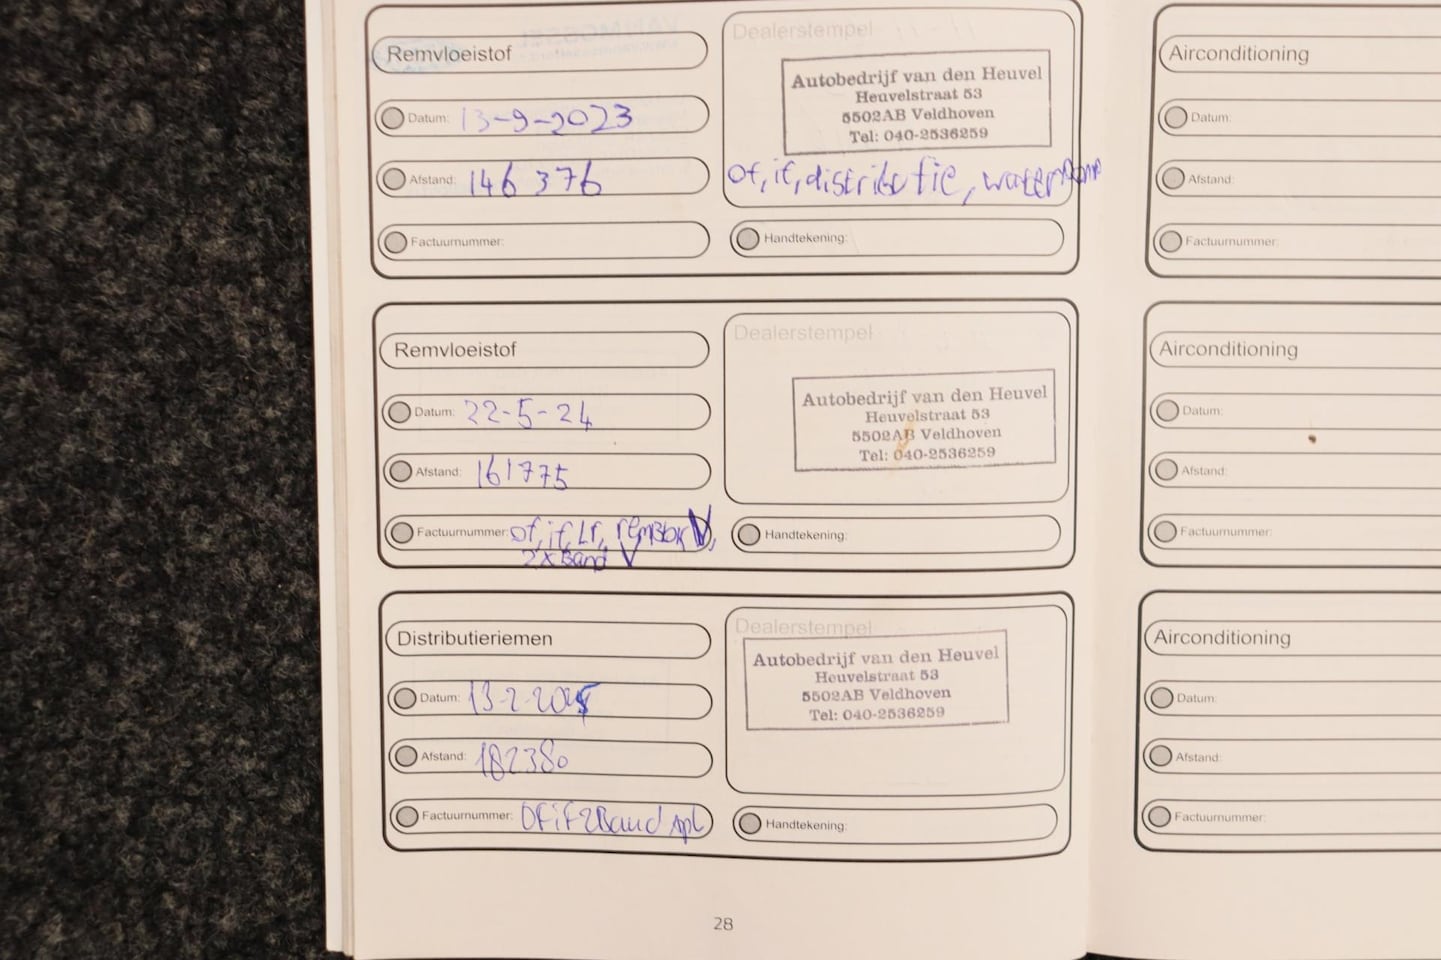 Remvloeistof
Datum: 13-9-2023
Afstand: 146 376
Factuurnummer:
Dealerstempel
Autobedrijf van den Heuvel
Heuvelstraat 53
5502AB Veldhoven
Tel: 040-2536259
of, if, distributie, waterpomp
Handtekening:
Remvloeistof
Datum: 22-5-24
Afstand: 161775
Factuurnummer: of, if, Lf,
2x Band V
Dealerstempel
Autobedrijf van den Heuvel
Heuvelstraat 53
5502AB Veldhoven
Tel: 040-2536259
Handtekening:
Distributieriemen
Datum: 13-2-2025
Afstand: 182380
Factuurnummer: OFiF2Band
Dealerstempel
Autobedrijf van den Heuvel
Heuvelstraat 53
5502AB Veldhoven
Tel: 040-2536259
Handtekening:
28
Airconditioning
Datum:
Afstand:
Factuurnummer:
Airconditioning
Datum:
Afstand:
Factuurnummer:
Airconditioning
Datum:
Afstand:
Factuurnummer: